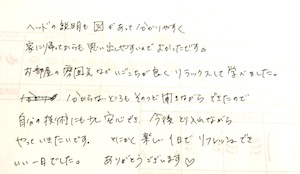 ヘッドの説明も図があって分かりやすく
家に帰ってからも思い出しやすいのでよかったです。
お部屋の雰囲気などいごこちが良くリラックスして学べました。
分からないところもそのつど聞きながらできたので
自分の技術にも 安心でき、今後とり入れながら
やっていきたいです。 とにかく楽しい1日でリフレッシュでき
いい一日でした。 ありがとうございます♡